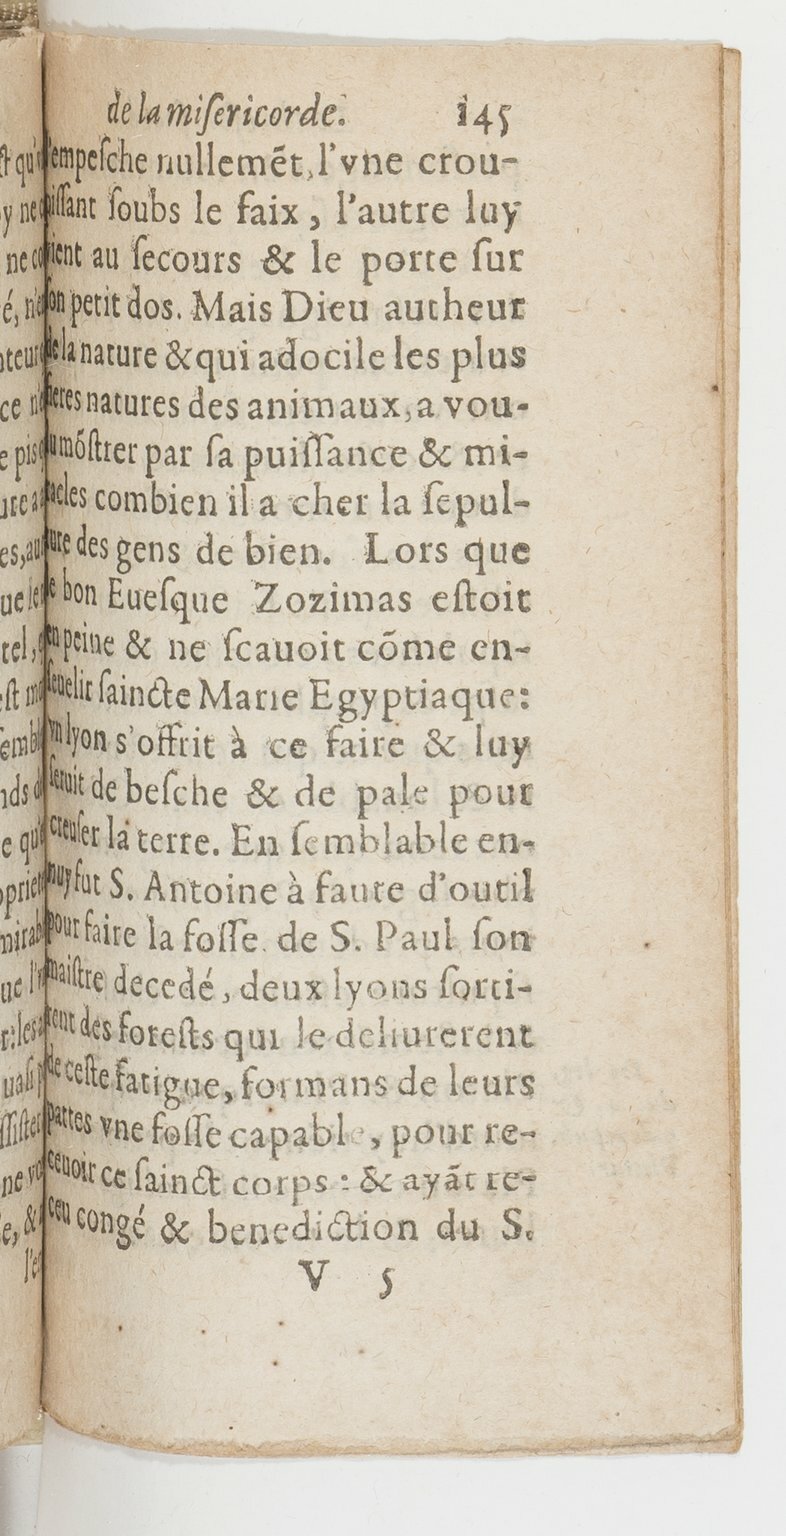 de la miſericorde. 145
l'empeſche nullemẽt, l'vne crou-
piſſant ſoubs le faix, l'autre luy
vient au ſecours & le porte ſur
ſon petit dos. Mais Dieu autheur
de la nature & qui adocile les plus
fieres natures des animaux, a vou-
lu mõſtrer par ſa puiſſance & mi-
racles combien il a cher la ſepul-
ture des gens de bien. Lors que
le bon Eueſque Zozimas eſtoit
en peine & ne ſcauoit cõme en-
ſeuelir ſaincte Marie Egyptiaque:
vn lyon s'offrit à ce faire & luy
ſeruit de beſche & de pale pour
creuſer la terre. En ſemblable en-
nuy fut S. Antoine à faute d'outil
pour faire la foſſe de S. Paul ſon
maiſtre decedé, deux lyons ſorti-
rent des foreſts qui le deliurerent
de ceſte fatigue, formans de leurs
pattes vne foſſe capable, pour re-
ceuoir ce ſainct corps : & ayãt re-
ceu congé & benediction du S.
V 5